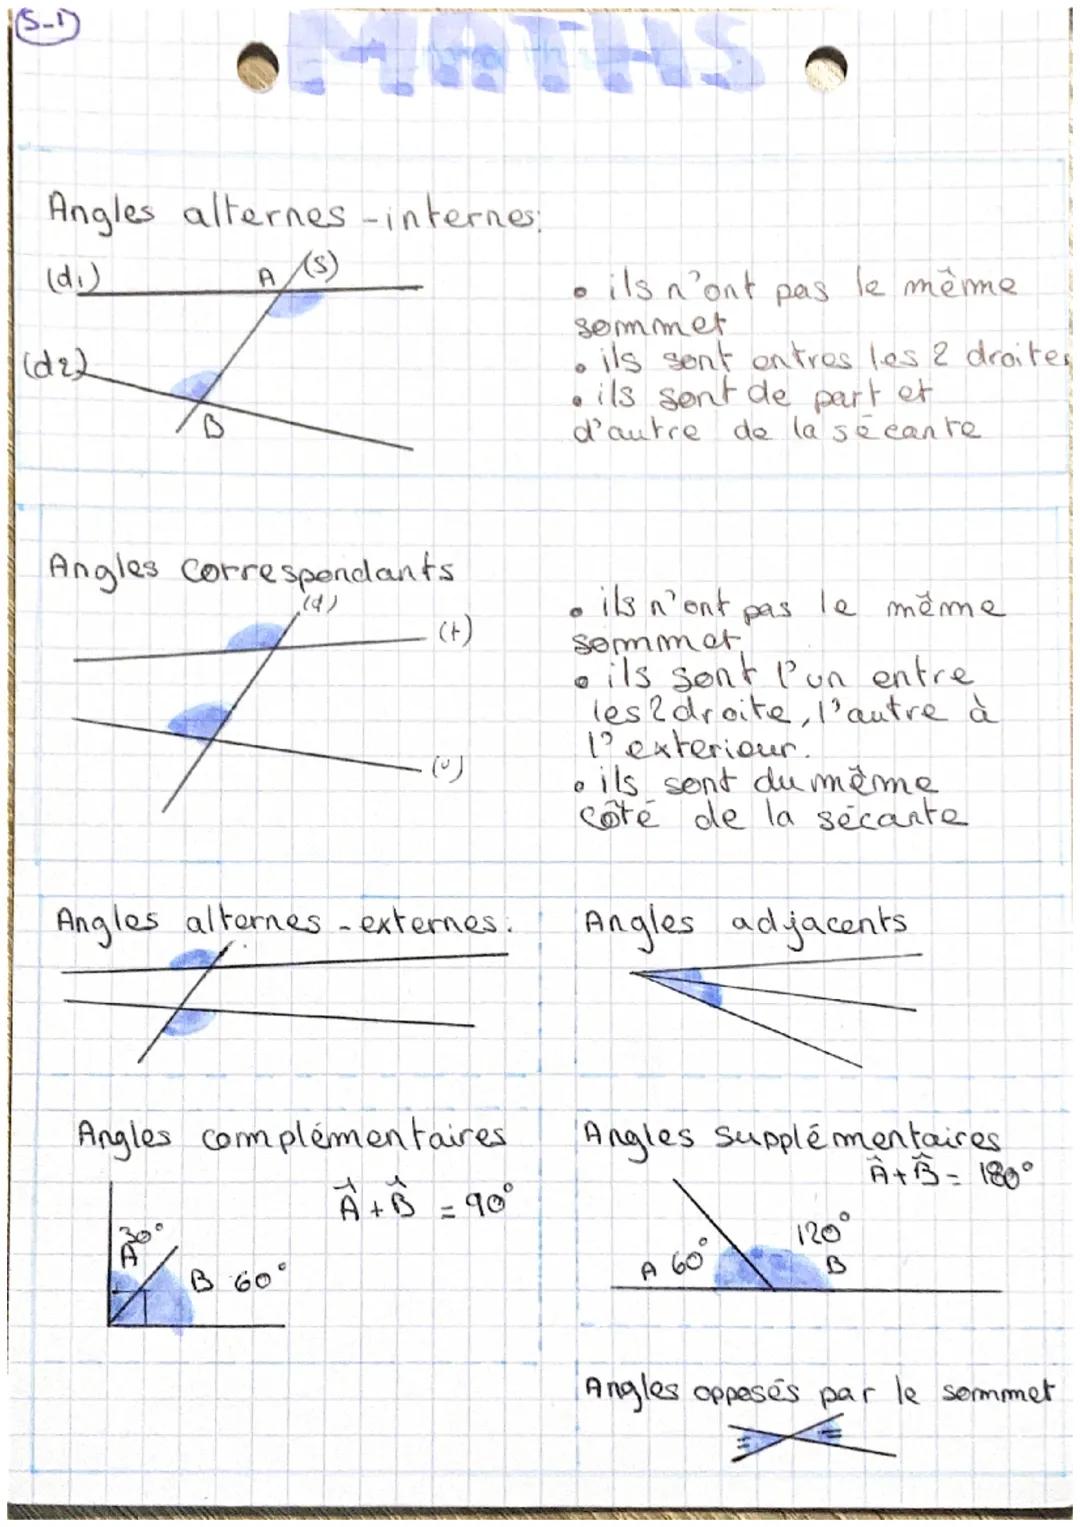 S-1
MATHS
Angles alternes-internes:
(d1)
A
(S)
(d2)
B
• ils n'ont pas le même
sommet
• ils sont entres les 2 droites
• ils sont de part et
d'autre de la sécante
Angles correspondants
(d)
(t)
(u)
• ils n'ont pas le même
sommet
• ils sont l'un entre
les 2 droite, l'autre à
l'exterieur.
• ils sont du même
côté de la sécante
Angles alternes-externes:
Angles adjacents
Angles complémentaires
Â+B̂ = 90°
30°
A
B 60°
Angles supplémentaires
Â+B̂ = 180°
A 60°
120°
B
Angles opposés par le sommet